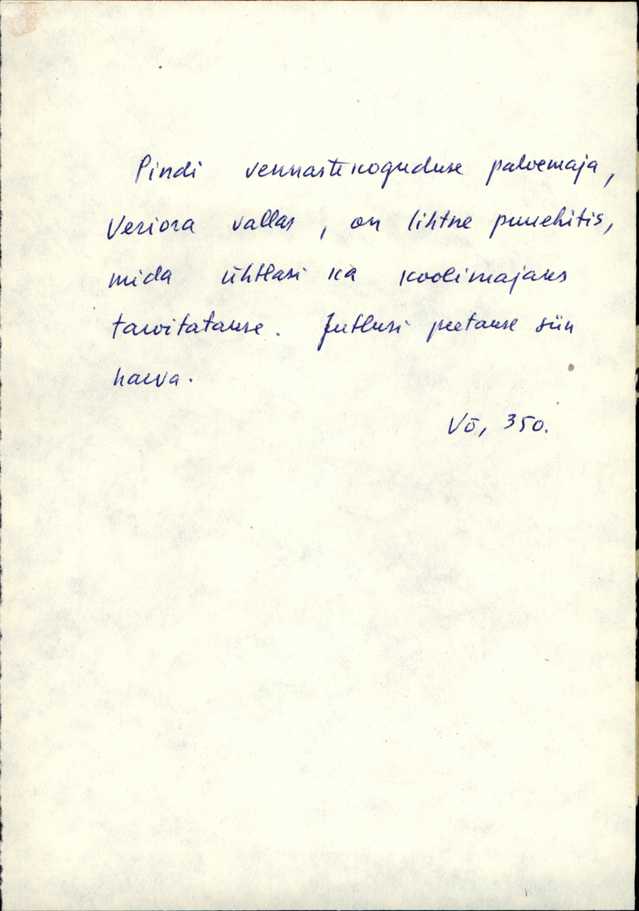 Pindi vennastekoguduse palvemaja,
Veriora vallas, on lihtne puuehitis,
mida ühtlasi ka koolimajaks
tarvitatakse. Jutlusi peetakse siin
harva.
Võ, 350.